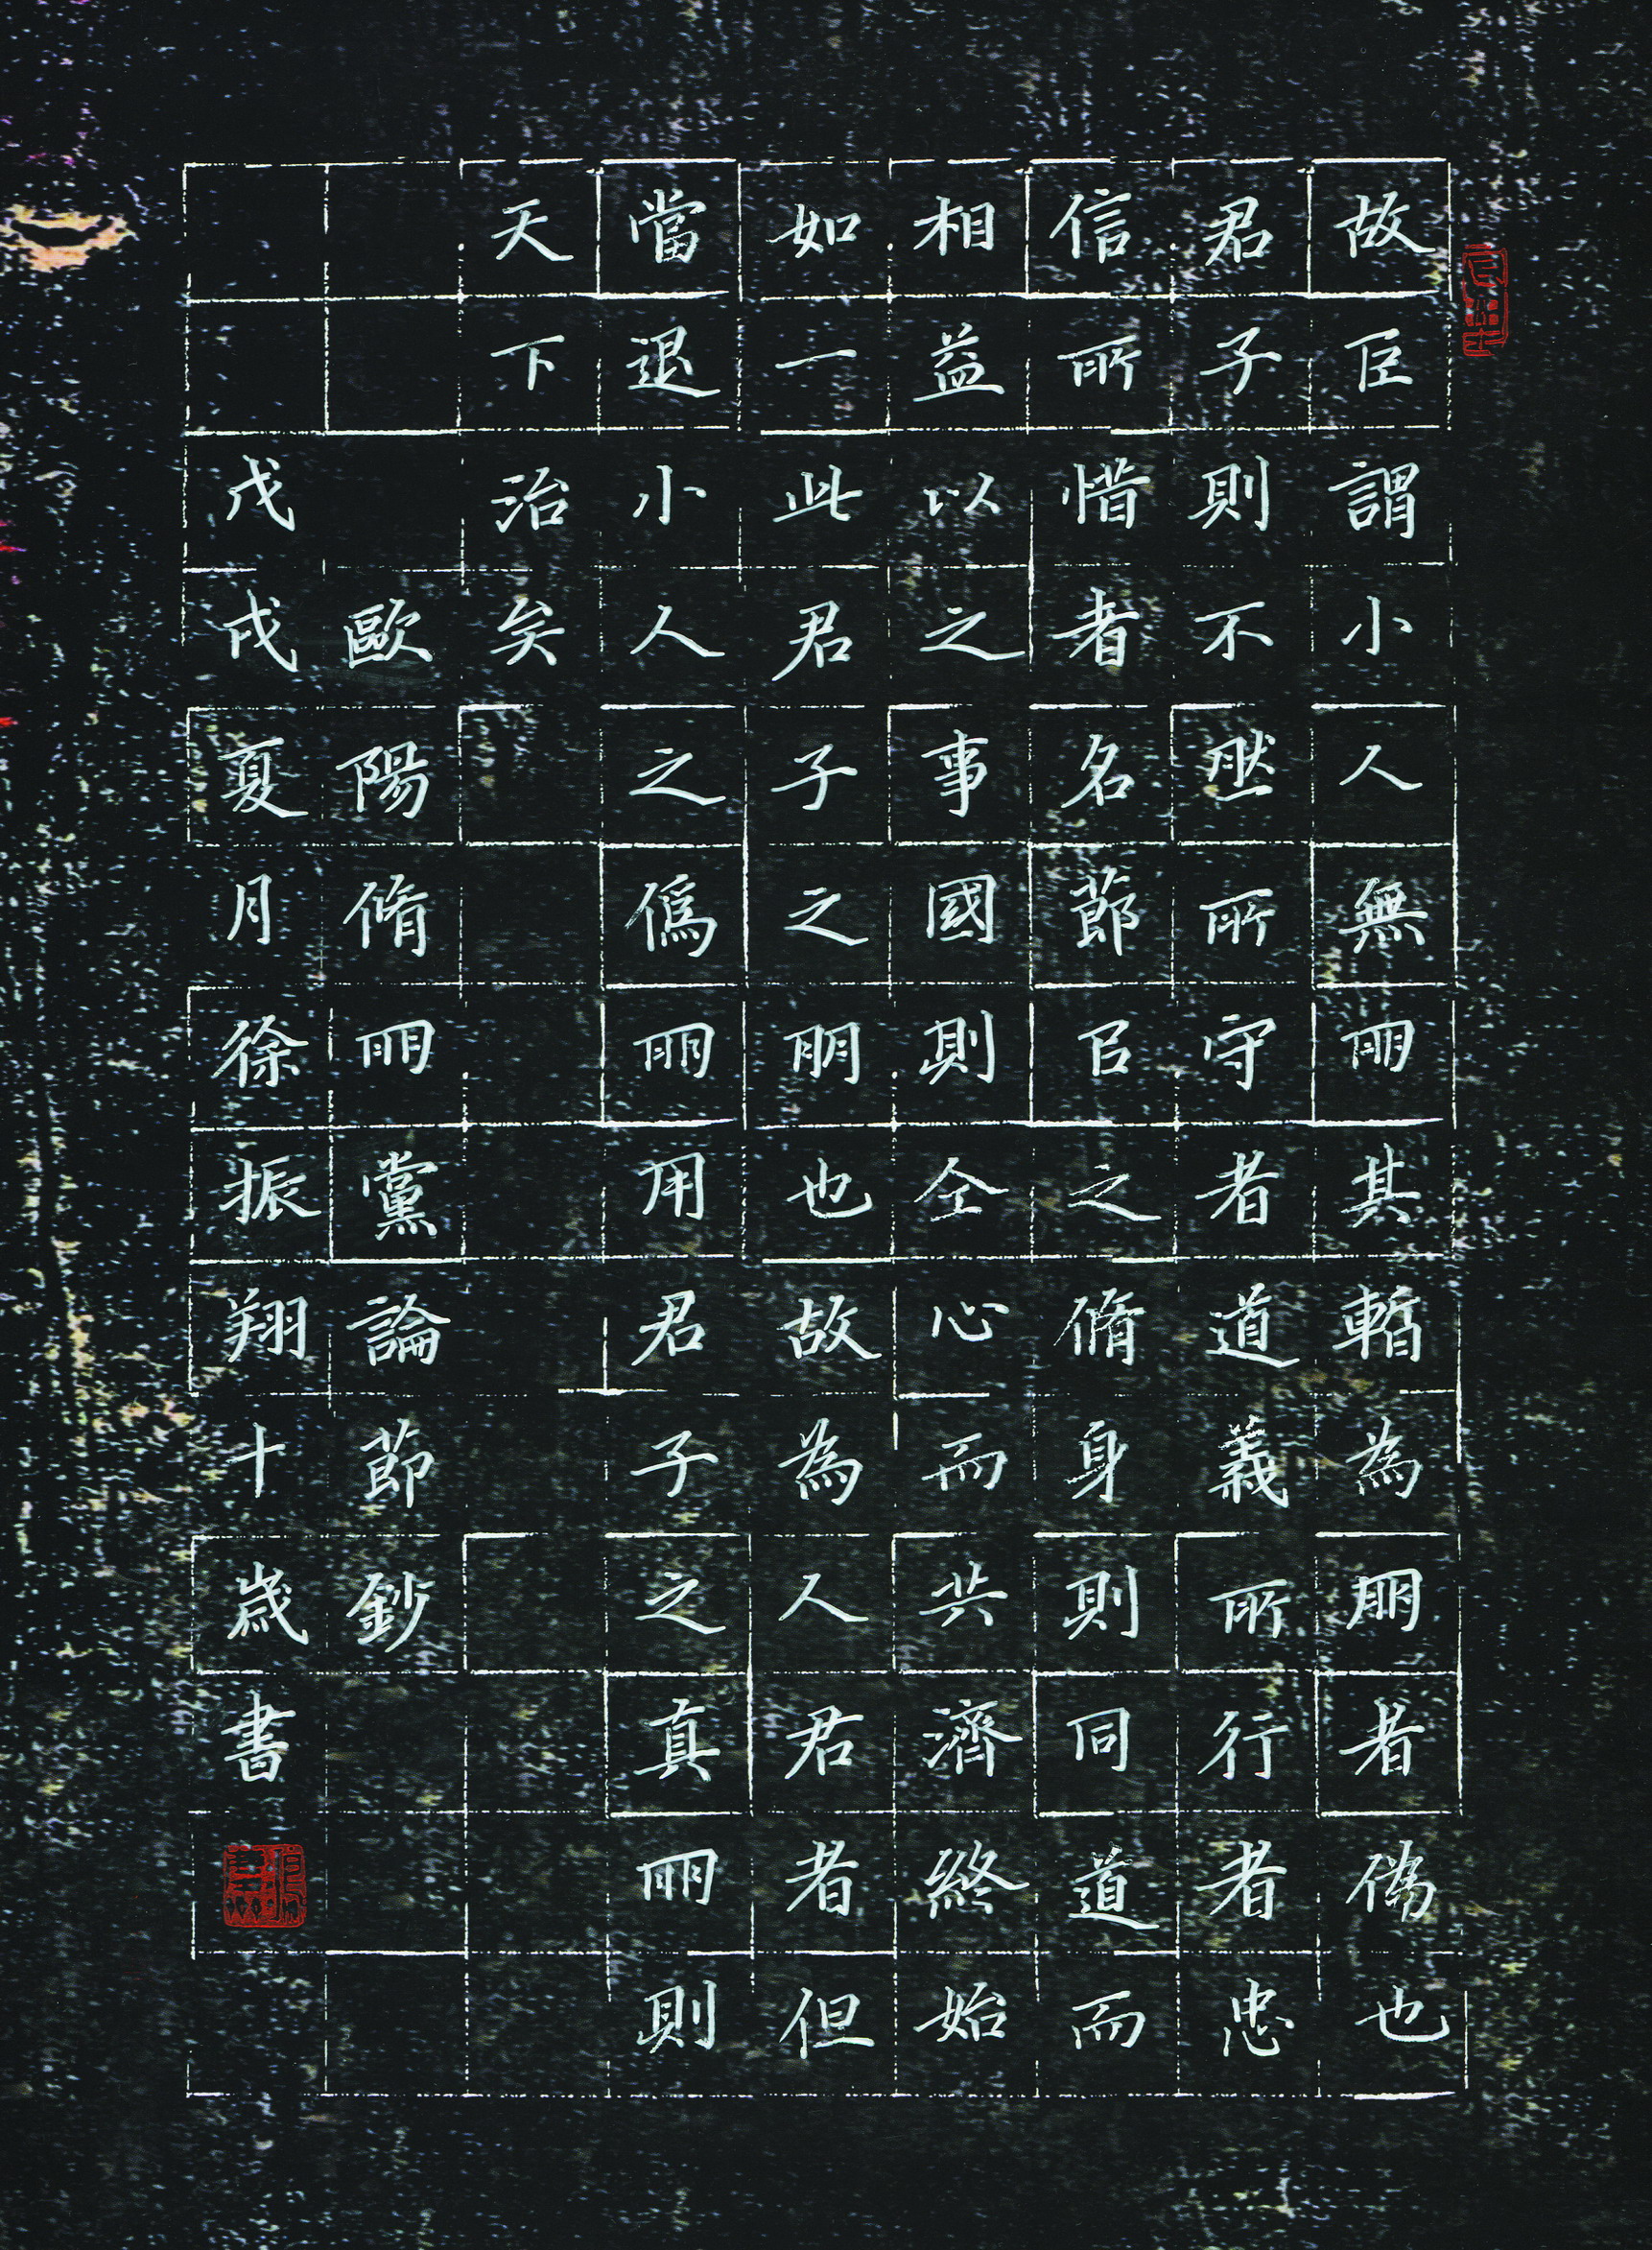 故臣謂小人無朋其暫為朋者偽也
君子則不然所守者道義所行者忠
信所惜者名節以之脩身則同道而
相益以之事國則同心而共濟終始
如一此君子之朋也故為人君者但
當退小人之偽朋用君子之真朋則
天下治矣
歐陽脩朋黨論節鈔
戊戌夏月徐振翔十歲書